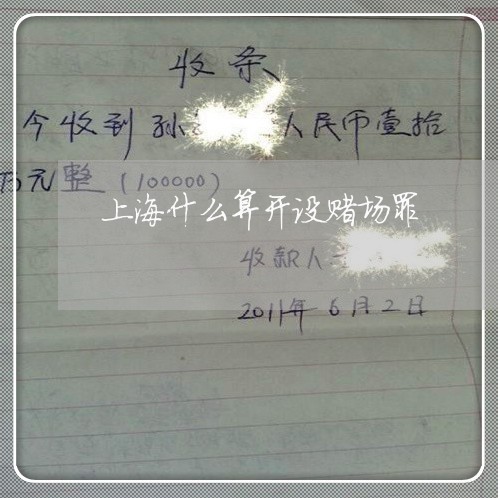 收条
今收到孙 人民币壹拾
万元整(100000)
上海什么算开设赌场罪
收款人
2011年6月2日